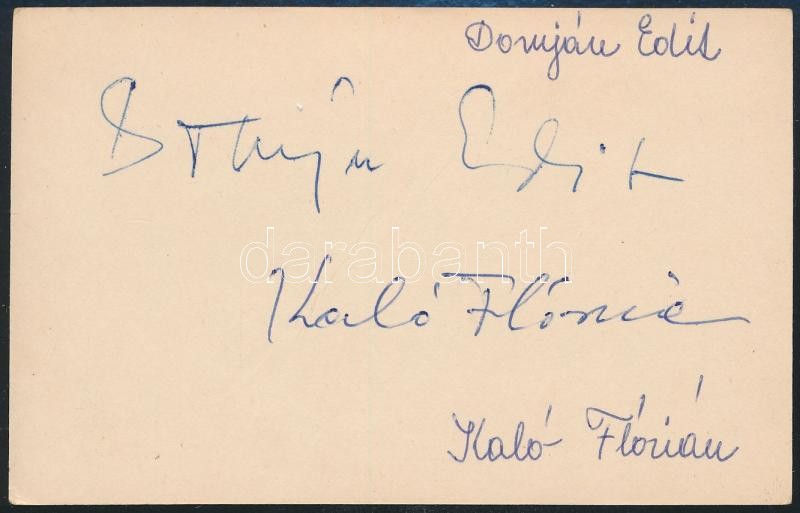 Domján Edit
Domján Edit
darabanth
Kaló Flórián
Kaló Flórián